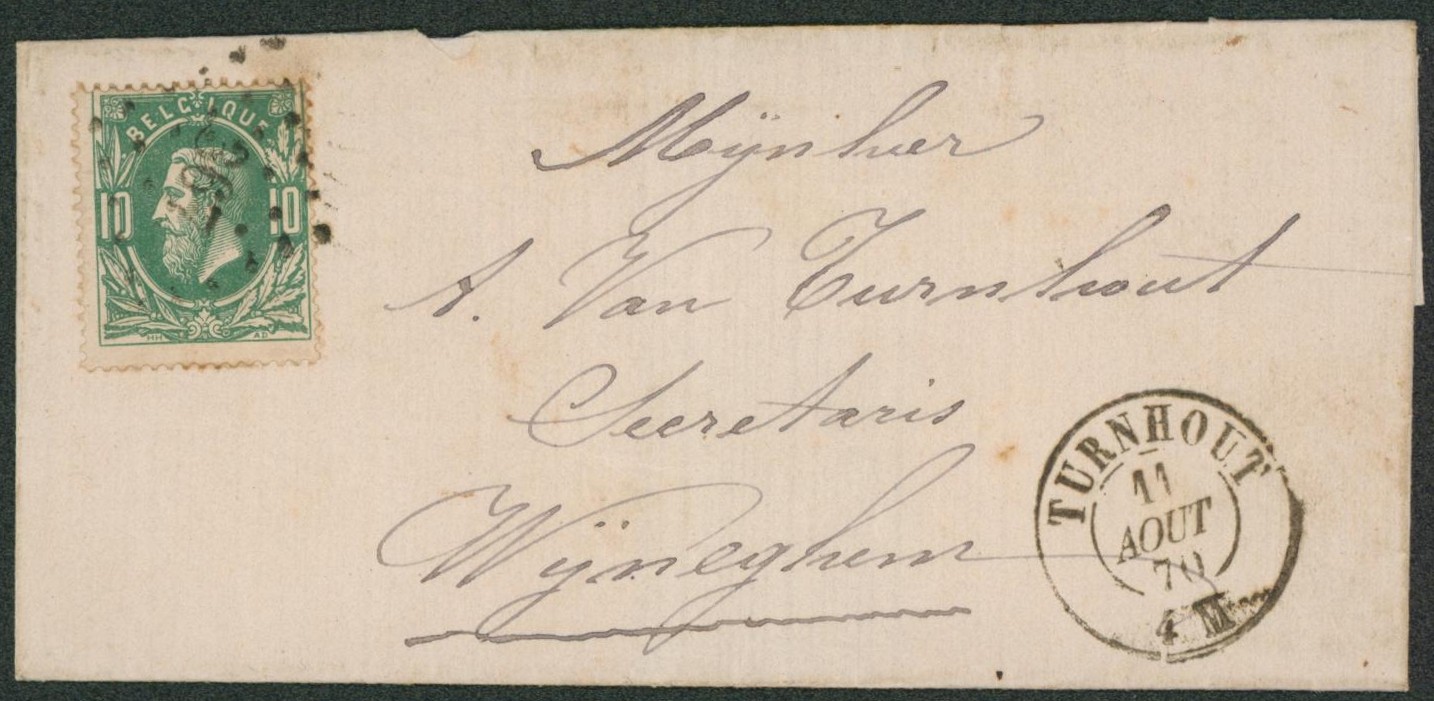 BELGIQUE
10 10
HH AD
Mÿnheer
A. Van Turnhout
Secretaris
Wÿneghem
TURNHOUT
11
AOUT
70
4 M